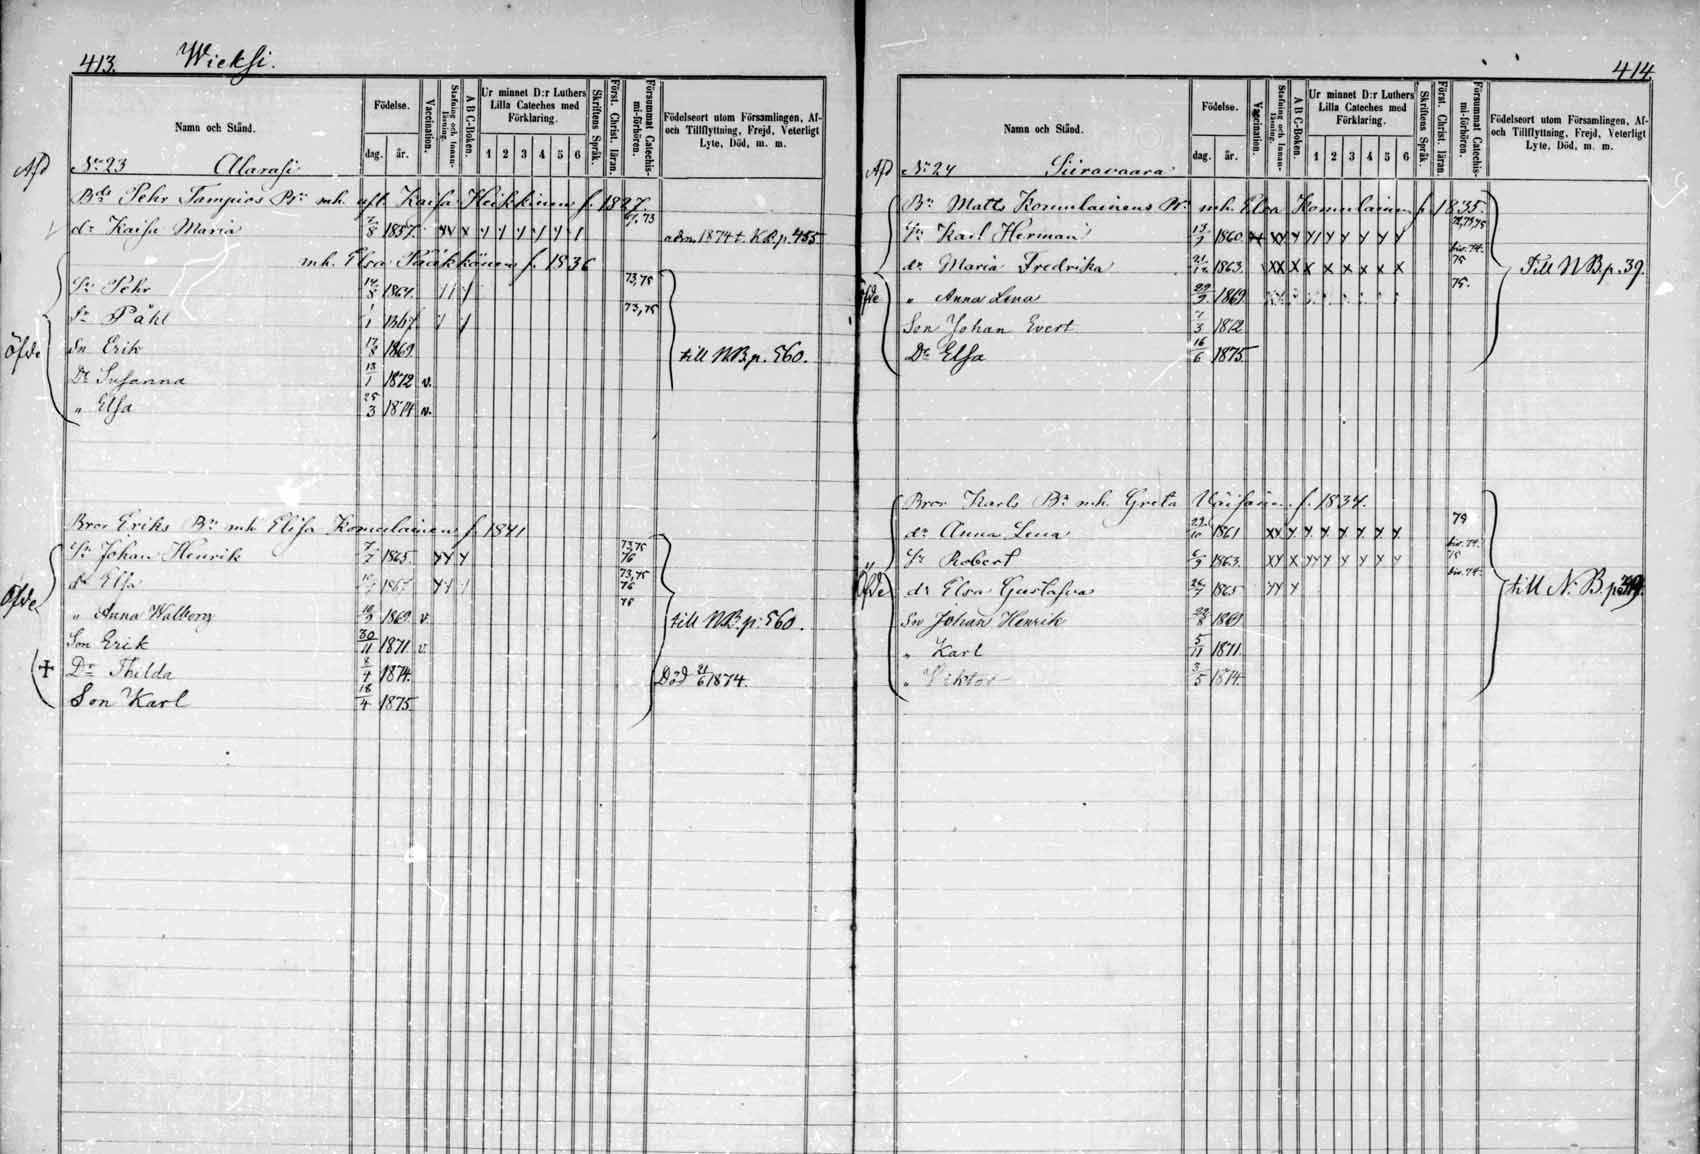 413. Wieksi.
Namn och Stånd.
Födelse.
dag. år.
Vaccination.
Stafning och Innan-läsning.
A B C-Boken.
Ur minnet D:r Luthers Lilla Cateches med Förklaring.
1 2 3 4 5 6
Skriftens Språk.
Först. Christ. läran.
Försummat Catechis-mi-förhören.
Födelseort utom Församlingen, Af- och Tillflyttning, Frejd, Veterligt Lyte, Död, m. m.
Afd No 23 Alarasi
Bds Pehr Tampios Bn mh. aft. Kaisa Heikkinen f. 1827.
dr Kaisa Maria 7/8 1857. 67, 73 adm. 1874 t. KB. p. 455
mh. Elsa Pääkkönen f. 1836
Sn Pehr 14/8 1864. 73, 75
Sn Påhl 1/1 1867. 73, 75
Öfde Sn Erik 17/8 1869 till NB. p. 560.
Dr Susanna 13/1 1872 v.
" Elsa 25/3 1874 v.
Bror Eriks Bn mh Elisa Komulainen f. 1841
Sn Johan Henrik 7/7 1865. 73, 75 76
Öfde dr Elsa 1867. 73, 75 76
" Anna Walborg 10/3 1869 v. 75 till NB. p. 560.
Son Erik 30/11 1871 v.
+ Dr Thilda 8/4 1874. Död 21/6 1874.
Son Karl 18/4 1875.
414
Namn och Stånd.
Födelse.
dag. år.
Vaccination.
Stafning och Innan-läsning.
A B C-Boken.
Ur minnet D:r Luthers Lilla Cateches med Förklaring.
1 2 3 4 5 6
Skriftens Språk.
Först. Christ. läran.
Försummat Catechis-mi-förhören.
Födelseort utom Församlingen, Af- och Tillflyttning, Frejd, Veterligt Lyte, Död, m. m.
Afd No 24 Siiravaara
Bn Matts Komulainens Bn mh. Elsa Komulainen f. 1835.
Sn Karl Herman 13/7 1860
dr Maria Fredrika 21/12 1863. 75 Till NB. p. 39.
Öfde " Anna Lena 29/9 1869 75.
Son Johan Evert 7/3 1872
Dr Elsa 16/6 1875
Bror Karls Bn mh. Greta Väisänen f. 1834.
dr Anna Lena 1861 79
Sn Robert 6/9 1863. 75
Öfde dr Elsa Gustafva 26/7 1865 till N. B. p.
Sn Johan Henrik 22/8 1869
" Karl 5/11 1871
" Viktor 3/5 1874.